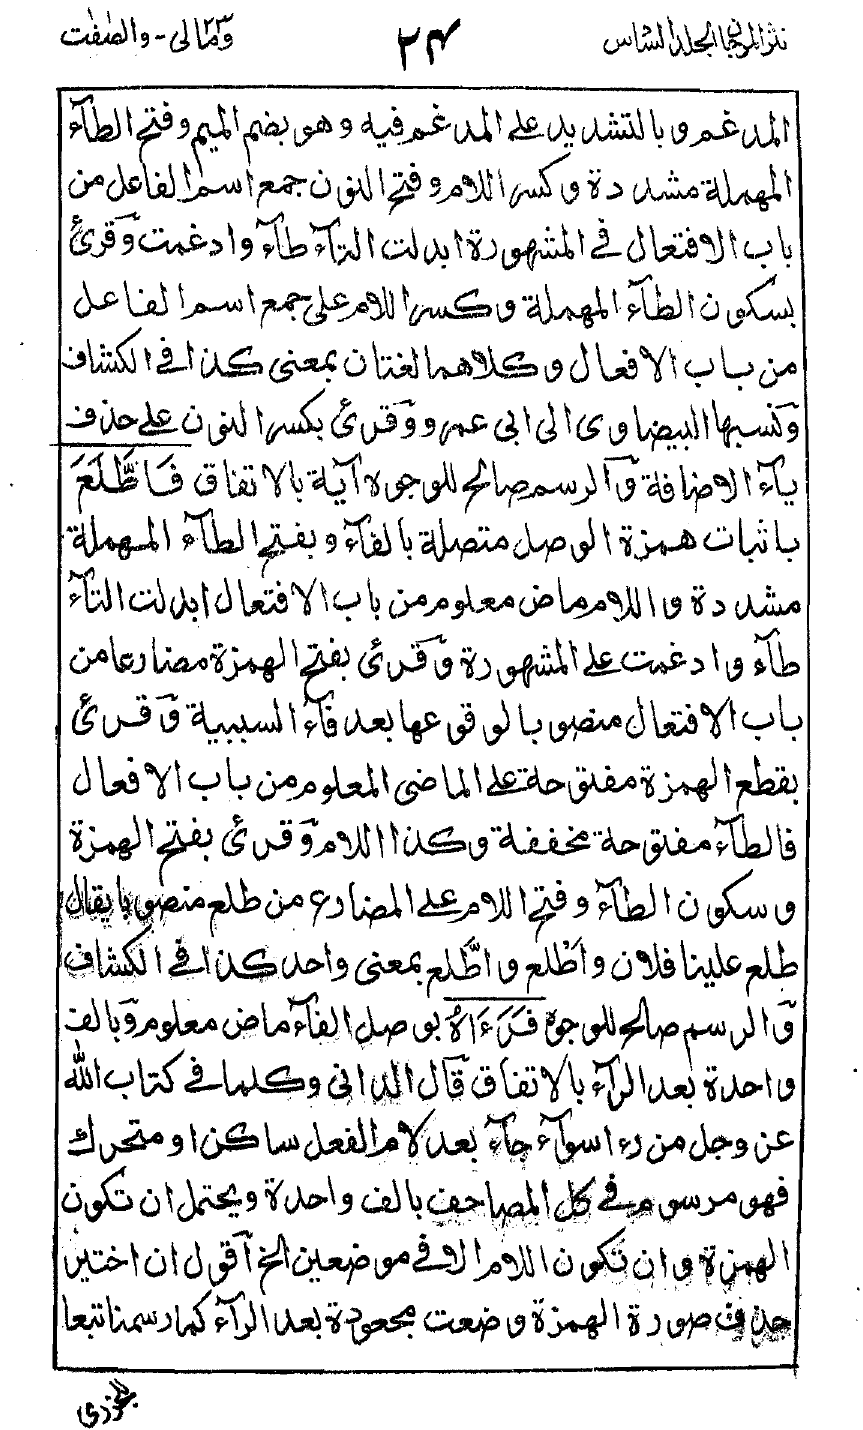 نثر المرجان الجلد السادس
٢٤
ومالى - والصفت
المدغم وبالتشديد على المدغم فيه وهو بضم الميم وفتح الطآء
المهملة مشددة وكسر اللام وفتح النون جمع اسم الفاعل من
باب الافتعال فى المشهورة ابدلت التآء طآء وادغمت وقرئ
بسكون الطآء المهملة وكسر اللام على جمع اسم الفاعل
من باب الافعال وكلاهما لغتان بمعنى كذا فى الكشاف
ونسبها البيضاوى الى ابى عمرو وقرئ بكسر النون على حذف
يآء الاضافة والرسم صالح للوجوه آية بالاتفاق فَاطَّلَعَ
باثبات همزة الوصل متصلة بالفآء وبفتح الطآء المهملة
مشددة واللام ماض معلوم من باب الافتعال ابدلت التآء
طآء وادغمت على المشهورة وقرئ بفتح الهمزة مضارعا من
باب الافتعال منصوبا لوقوعها بعد فآء السببية وقرئ
بقطع الهمزة مفتوحة على الماضى المعلوم من باب الافعال
فالطآء مفتوحة مخففة وكذا اللام وقرئ بفتح الهمزة
وسكون الطآء وفتح اللام على المضارع من طلع منصوبا يقال
طلع علينا فلان واطلع واطّلع بمعنى واحد كذا فى الكشاف
والرسم صالح للوجوه فَرَءَاهُ بوصل الفآء ماض معلوم وبالف
واحدة بعد الرآء بالاتفاق قال الدانى وكلما فى كتاب الله
عز وجل من رءا سوآء جآء بعد لام الفعل ساكن او متحرك
فهو مرسوم فى كل المصاحف بالف واحدة ويحتمل ان تكون
الهمزة وان تكون اللام الا فى موضعين الخ اقول ان اختير
حذف صورة الهمزة وضعت مجعودة بعد الرآء كما رسمنا تبعا
للجزرى